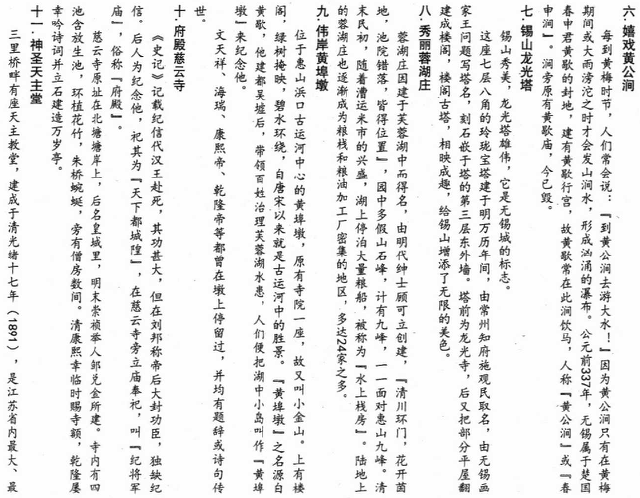 六、嬉戏黄公涧
每到黄梅时节，人们常会说：『到黄公涧去游大水！』因为黄公涧只有在黄梅
期间或大雨滂沱之时才会发山涧水，形成汹涌的瀑布。公元前337年，无锡属于楚国
春申君黄歇的封地，建有黄歇行宫，故黄歇常在此涧饮马，人称『黄公涧』或『春
申涧』。涧旁原有黄歇庙，今已毁。
七、锡山龙光塔
锡山秀美，龙光塔雄伟，它是无锡城的标志。
这座七层八角的玲珑宝塔建于明万历年间，由常州知府施观民取名，由无锡画
家王问题写塔名，刻石嵌于塔的第三层东外墙。塔前为龙光寺，后又把部分平屋翻
建成楼阁，楼阁古塔，相映成趣，给锡山增添了无限的美色。
八、秀丽蓉湖庄
蓉湖庄因建于芙蓉湖中而得名，由明代绅士顾可立创建，『清川环门，花开茵
地，池院错落，皆得位置』，园中多假山石峰，计有九峰，一一面对惠山九峰。清
末民初，随着漕运米市的兴盛，湖上停泊大量粮船，被称为『水上栈房』。陆地上
的蓉湖庄也逐渐成为粮栈和粮油加工厂密集的地区，多达24家之多。
九、伟岸黄埠墩
位于惠山浜口古运河中心的黄埠墩，原有寺院一座，故又叫小金山。上有楼
阁，绿树掩映，碧水环绕，自唐宋以来就是古运河中的胜景。『黄埠墩』之名源自
黄歇，他建都吴墟后，带领百姓治理芙蓉湖水患，人们便把湖中小岛叫作『黄埠
墩』来纪念他。
文天祥、海瑞、康熙帝、乾隆帝等都曾在墩上停留过，并均有题辞或诗句传
世。
十、府殿慈云寺
《史记》记载纪信代汉王赴死，其功甚大，但在刘邦称帝后大封功臣，独缺纪
信。后人为纪念他，祀其为『天下都城隍』，在慈云寺旁立庙奉祀，叫『纪将军
庙』，俗称『府殿』。
慈云寺原址在北塘塘岸上，后名皇城里，明末崇祯举人邹兑金所建。寺内有四
池含放生池，环植花竹，朱桥蜿蜒，旁有僧房数间。清康熙幸临时赐寺额，乾隆屡
幸吟诗词并立石建造万岁亭。
十一、神圣天主堂
三里桥畔有座天主教堂，建成于清光绪十七年（1891），是江苏省内最大、最